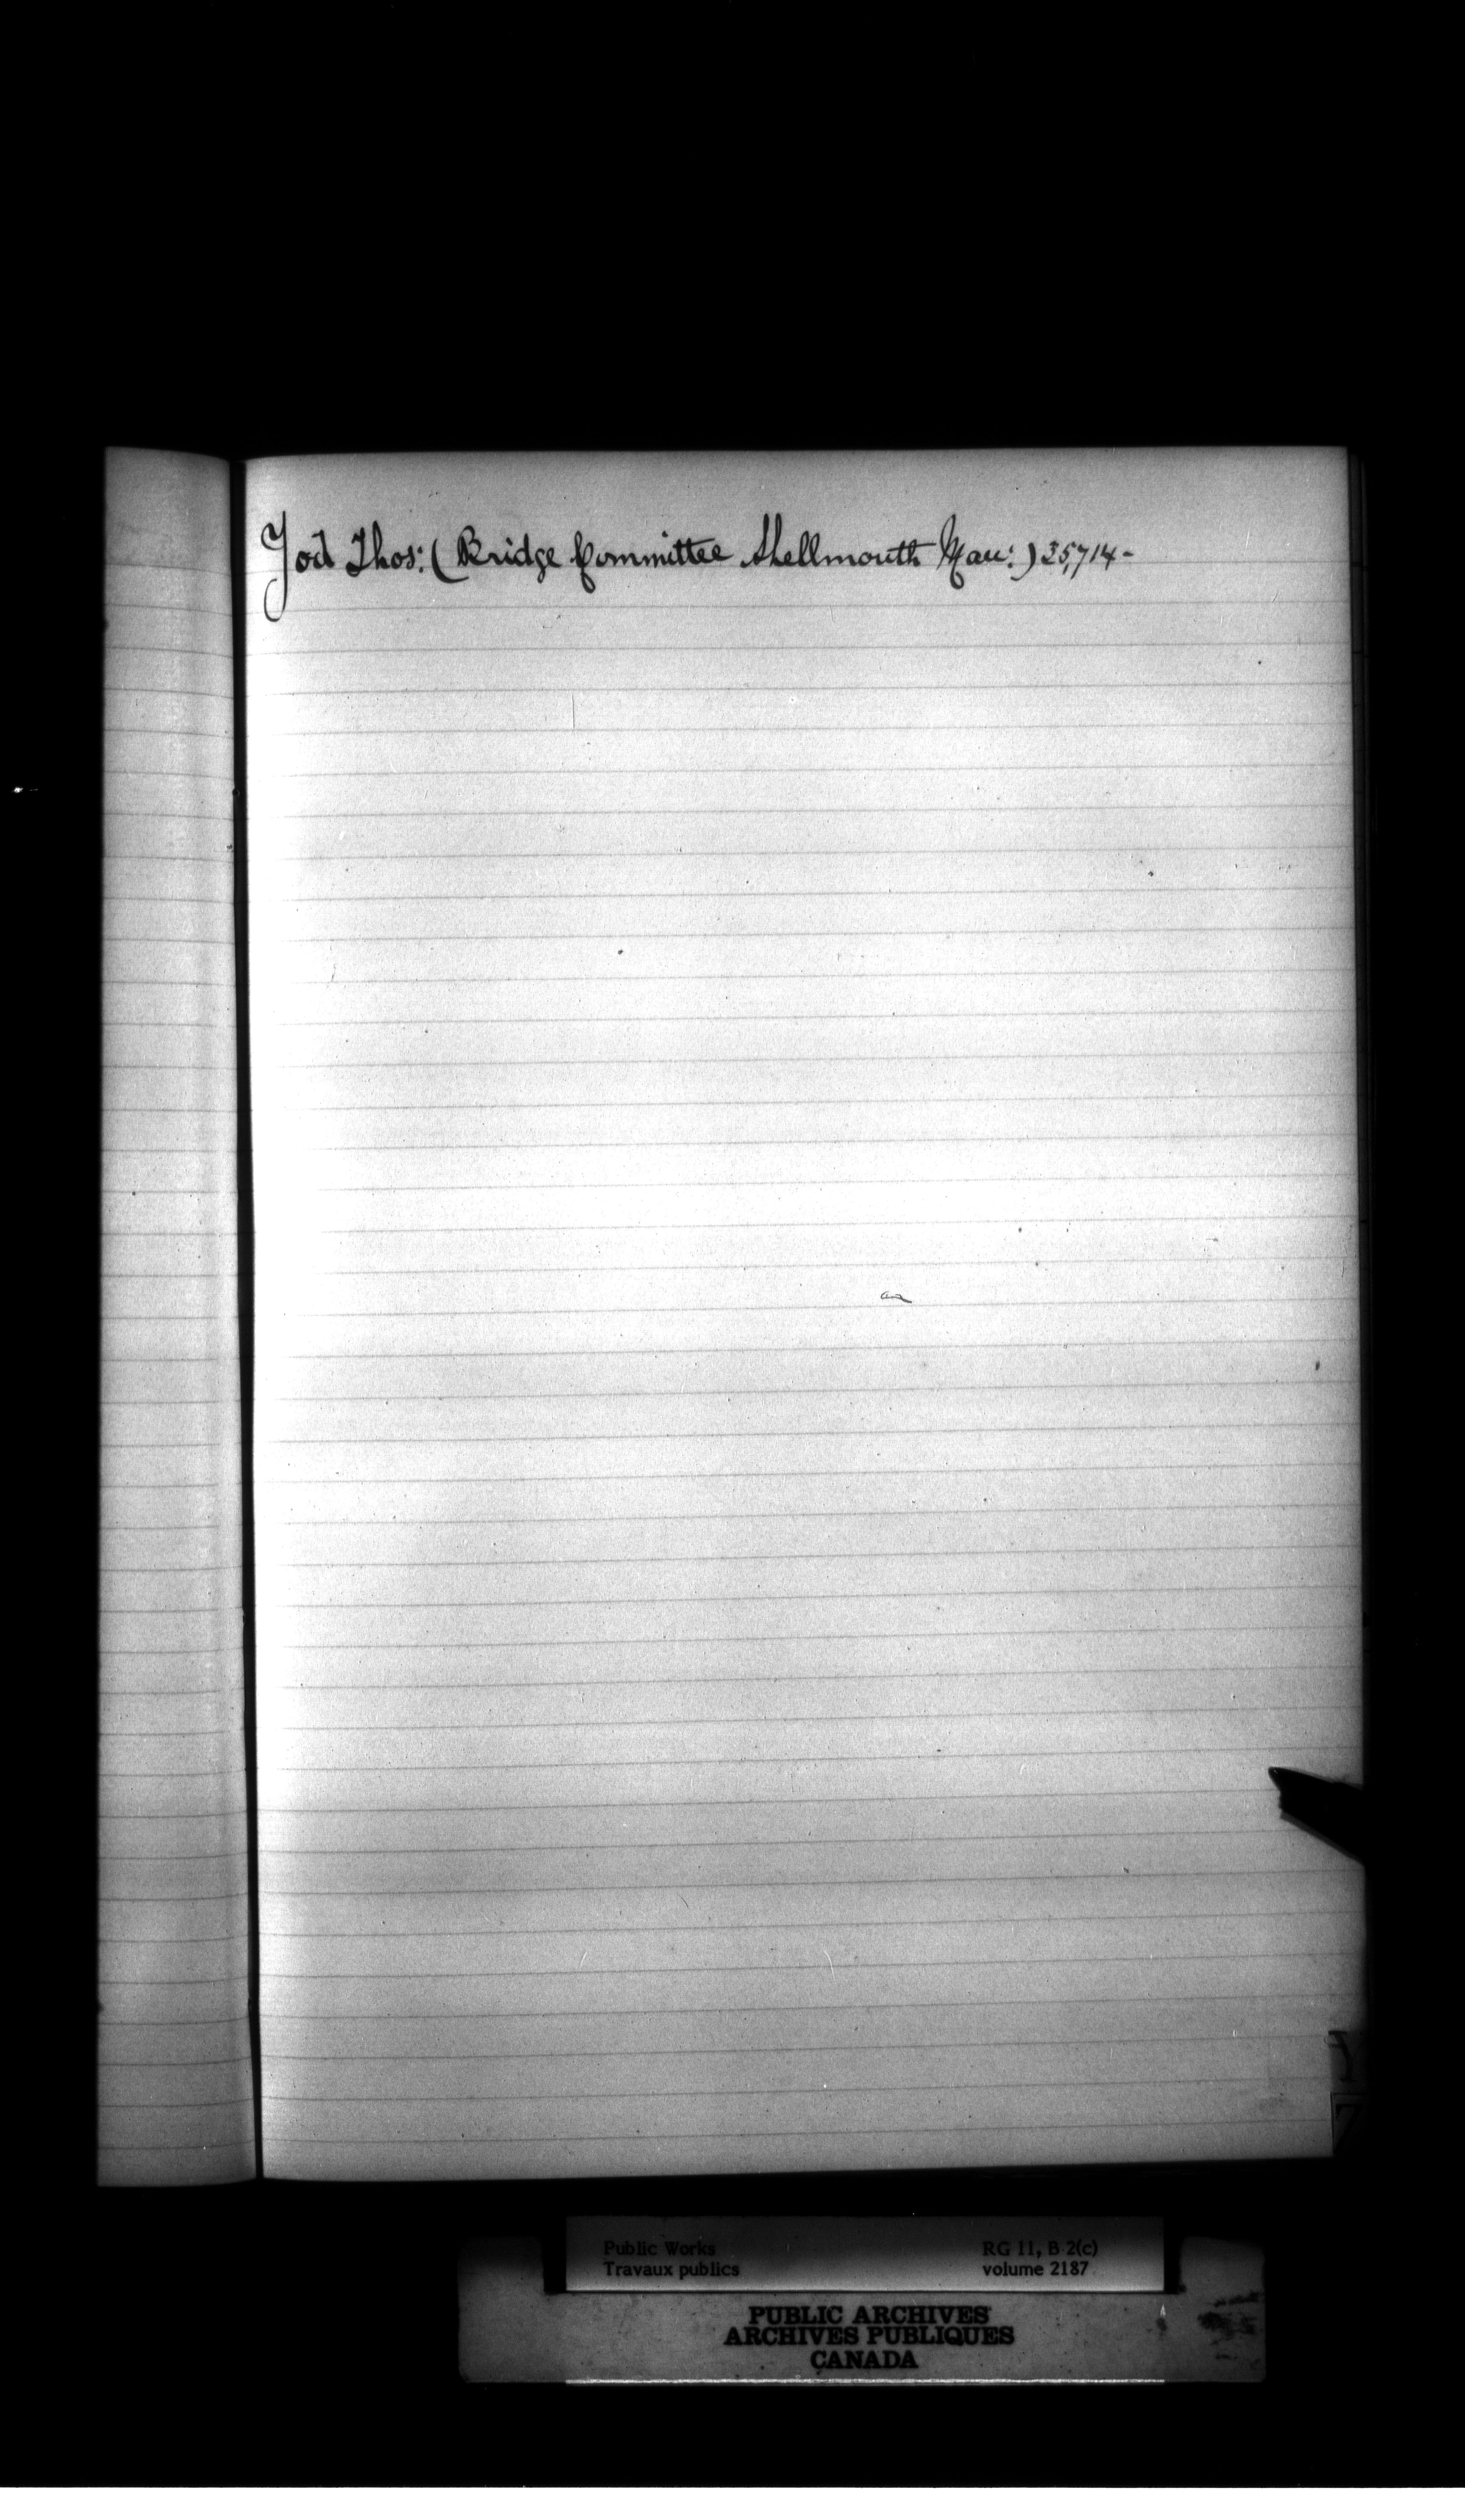 Yod Thos: (Bridge Committee Shellmouth Man:) 25,714-
Y
Z
Public Works
Travaux publics
RG 11, B 2(c)
volume 2187
PUBLIC ARCHIVES
ARCHIVES PUBLIQUES
CANADA